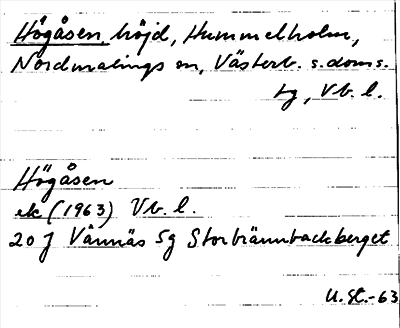 Högåsen, höjd, Hummelholm,
Nordmalings sn, Västerb. s. doms.
tg, Vb. l.
Högåsen
ek (1963) Vb. l.
20 J Vännäs 5g Storbrännbackberget
U.St.-63